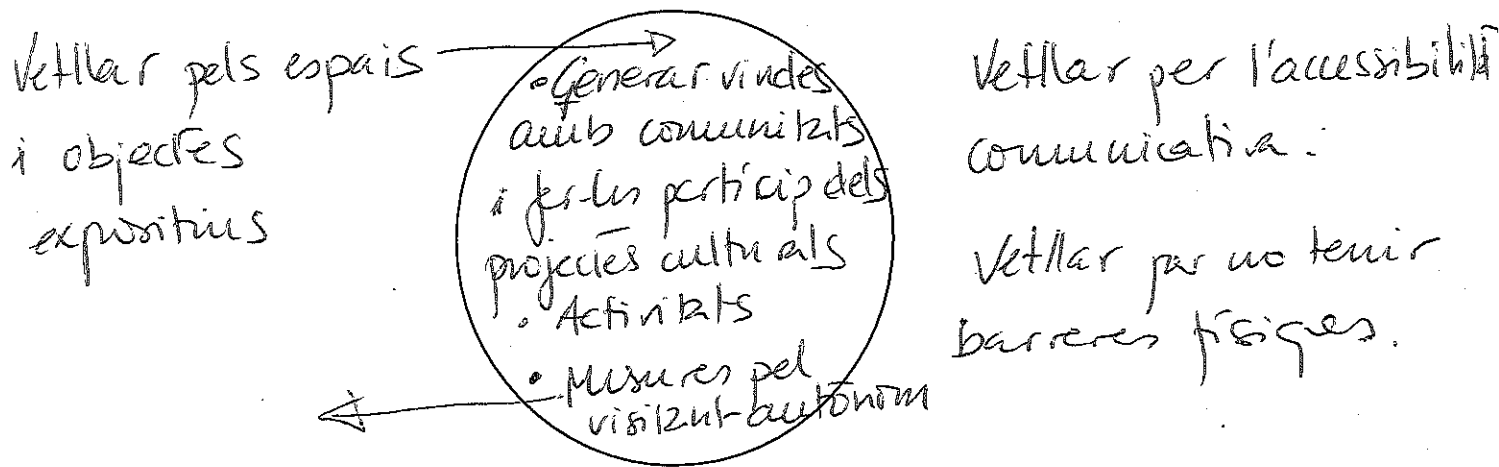 Vetllar pels espais
i objectes
expositius
• Generar vincles
amb comunitats
i fer-les partícip dels
projectes culturals
• Activitats
• Mesures pel
visitant autònom
Vetllar per l'accessibilitat
comunicativa.
Vetllar per no tenir
barreres físiques.